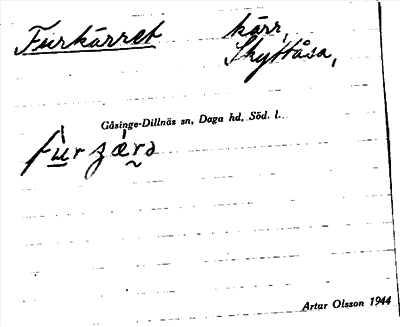 Furkärret kärr,
Skyttåsa,
Gåsinge-Dillnäs sn, Daga hd, Söd. l.
Artur Olsson 1944